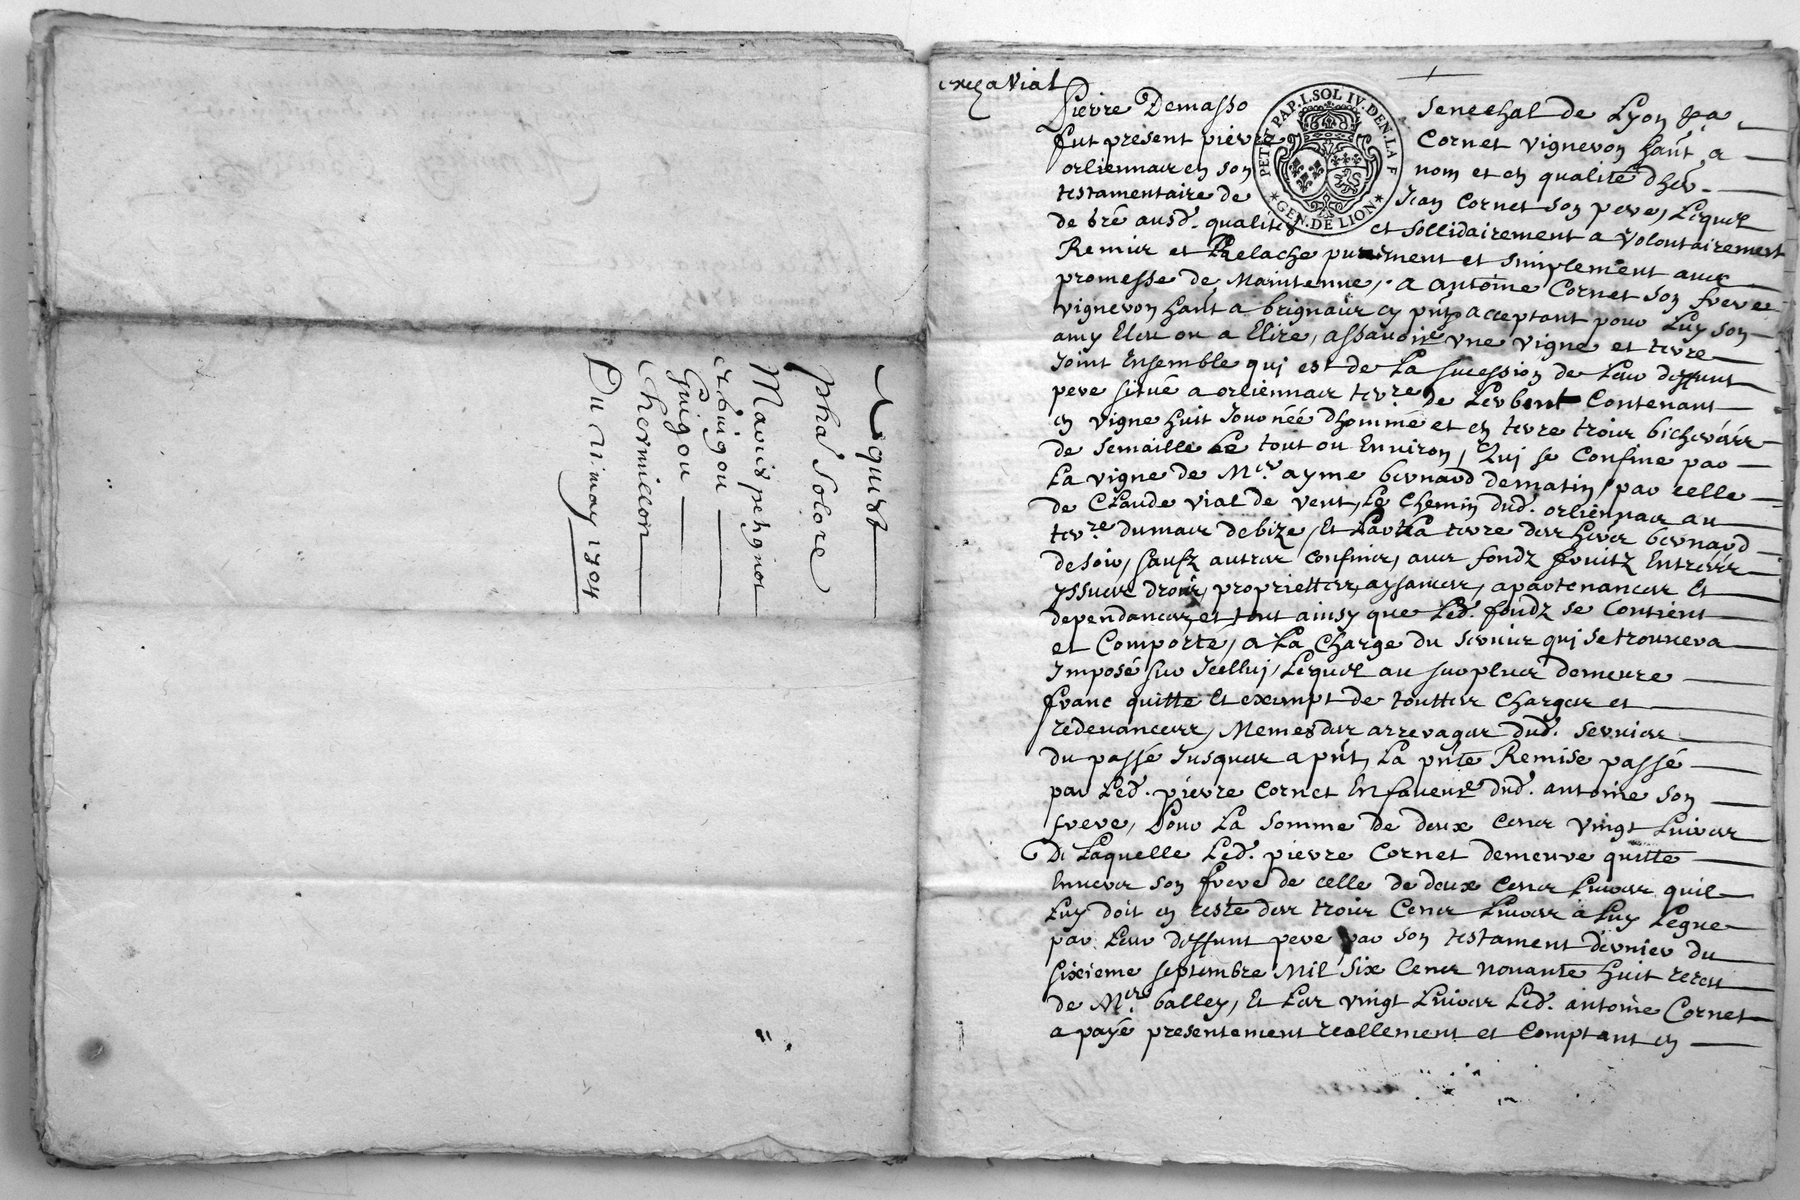 acquist
phā Solore
Mavris petignot
Guigou
Chermillon
Du vi may 1704
Vial
Pierre Demasso
Senechal de Lyon
PETIT PAP. I. SOL IV. DEN. LA F
GEN. DE LION
fut present pierre Cornet vigneron hañt a
orliennas en son nom et en qualité dher.
testamentaire de Jean Cornet son pere, Lequel
de gré ausd. qualites et sollidairement a volontairement
Remis et Relache purement et simplement avec
promesse de Maintenue, a antoine Cornet son frere
vigneron hañt a brignais cy pñt acceptant pour Luy son
amy Eleu ou a Elire, assavoir vne vigne et terre
Joint Ensemble qui est de La sucession de Leur deffunt
pere situé a orliennas terre de Contenant
en vigne huit Journéé dhomme et en terre trois bicherées
de semaille Le tout ou Environ, Qui se Confine par
La vigne de Mre. ayme bernard de matin, par celle
de Claude vial de vent, Le Chemin dud. orliennas au
de bize, Et La terre des hers bernard
de soir, saufz autres Confines, avec fondz fruitz Entrées
yssues drois, proprietter, aysances, apartenances Et
dependances, et tout ainsy que Led. fondz se Contient
et Comporte, a La Charge du servis qui se trouvera
Jmposé sur Jcelluj, Lequel au surplus demeure
franc quitte Et exempt de touttes Charges et
redevances, Memes des arrerages dud. servies
du passé Jusques a pñt, La pñte Remise passé
par Led. pierre Cornet En faveur dud. antoine son
frere, Pour La somme de deux Cens vingt Livres
De Laquelle Led. pierre Cornet demeure quitte
Envers son frere de celle de deux Cens Livres quil
Luy doit en reste des trois Cens Livres a Luy Legue
par Leur deffunt pere par son testament dernier du
sixieme septembre Mil six Cens nonante huit receu
de Mre balley, Et Les vingt Livres Led. antoine Cornet
a payé presentement reallement et Comptant en